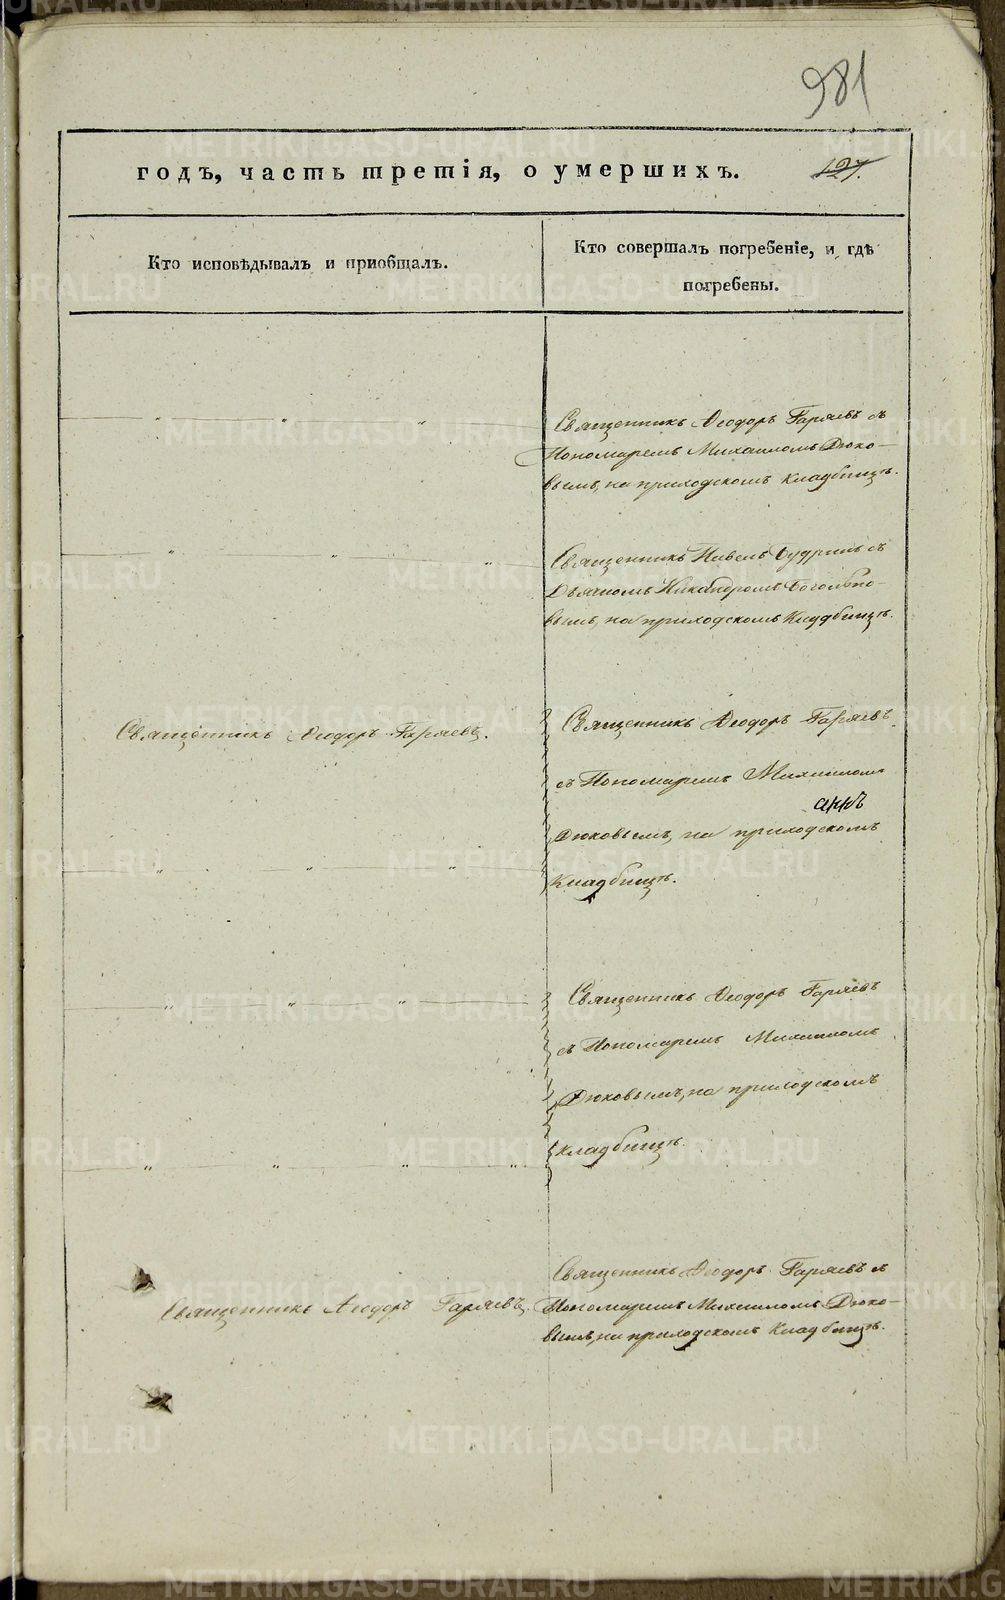 981
годъ, часть третія, о умершихъ.
127.
Кто исповѣдывалъ и приобщалъ.
Кто совершалъ погребеніе, и гдѣ
погребены.
Священникъ Ѳеодоръ Гаряевъ съ
Пономаремъ Михаиломъ Дюко-
вымъ, на приходскомъ кладбищѣ.
Священникъ Павелъ Будринъ съ
Дьячкомъ Никандромъ
вымъ, на приходскомъ кладбищѣ.
Священникъ Ѳеодоръ Гаряевъ.
Священникъ Ѳеодоръ Гаряевъ
съ Пономаремъ Михаиломъ
Дюковымъ, на приходскомъ
кладбищѣ.
Священникъ Ѳеодоръ Гаряевъ
съ Пономаремъ Михаиломъ
Дюковымъ, на приходскомъ
кладбищѣ.
Священникъ Ѳеодоръ Гаряевъ.
Священникъ Ѳеодоръ Гаряевъ съ
Пономаремъ Михаиломъ Дюко-
вымъ, на приходскомъ кладбищѣ.
METRIKI.GASO-URAL.RU